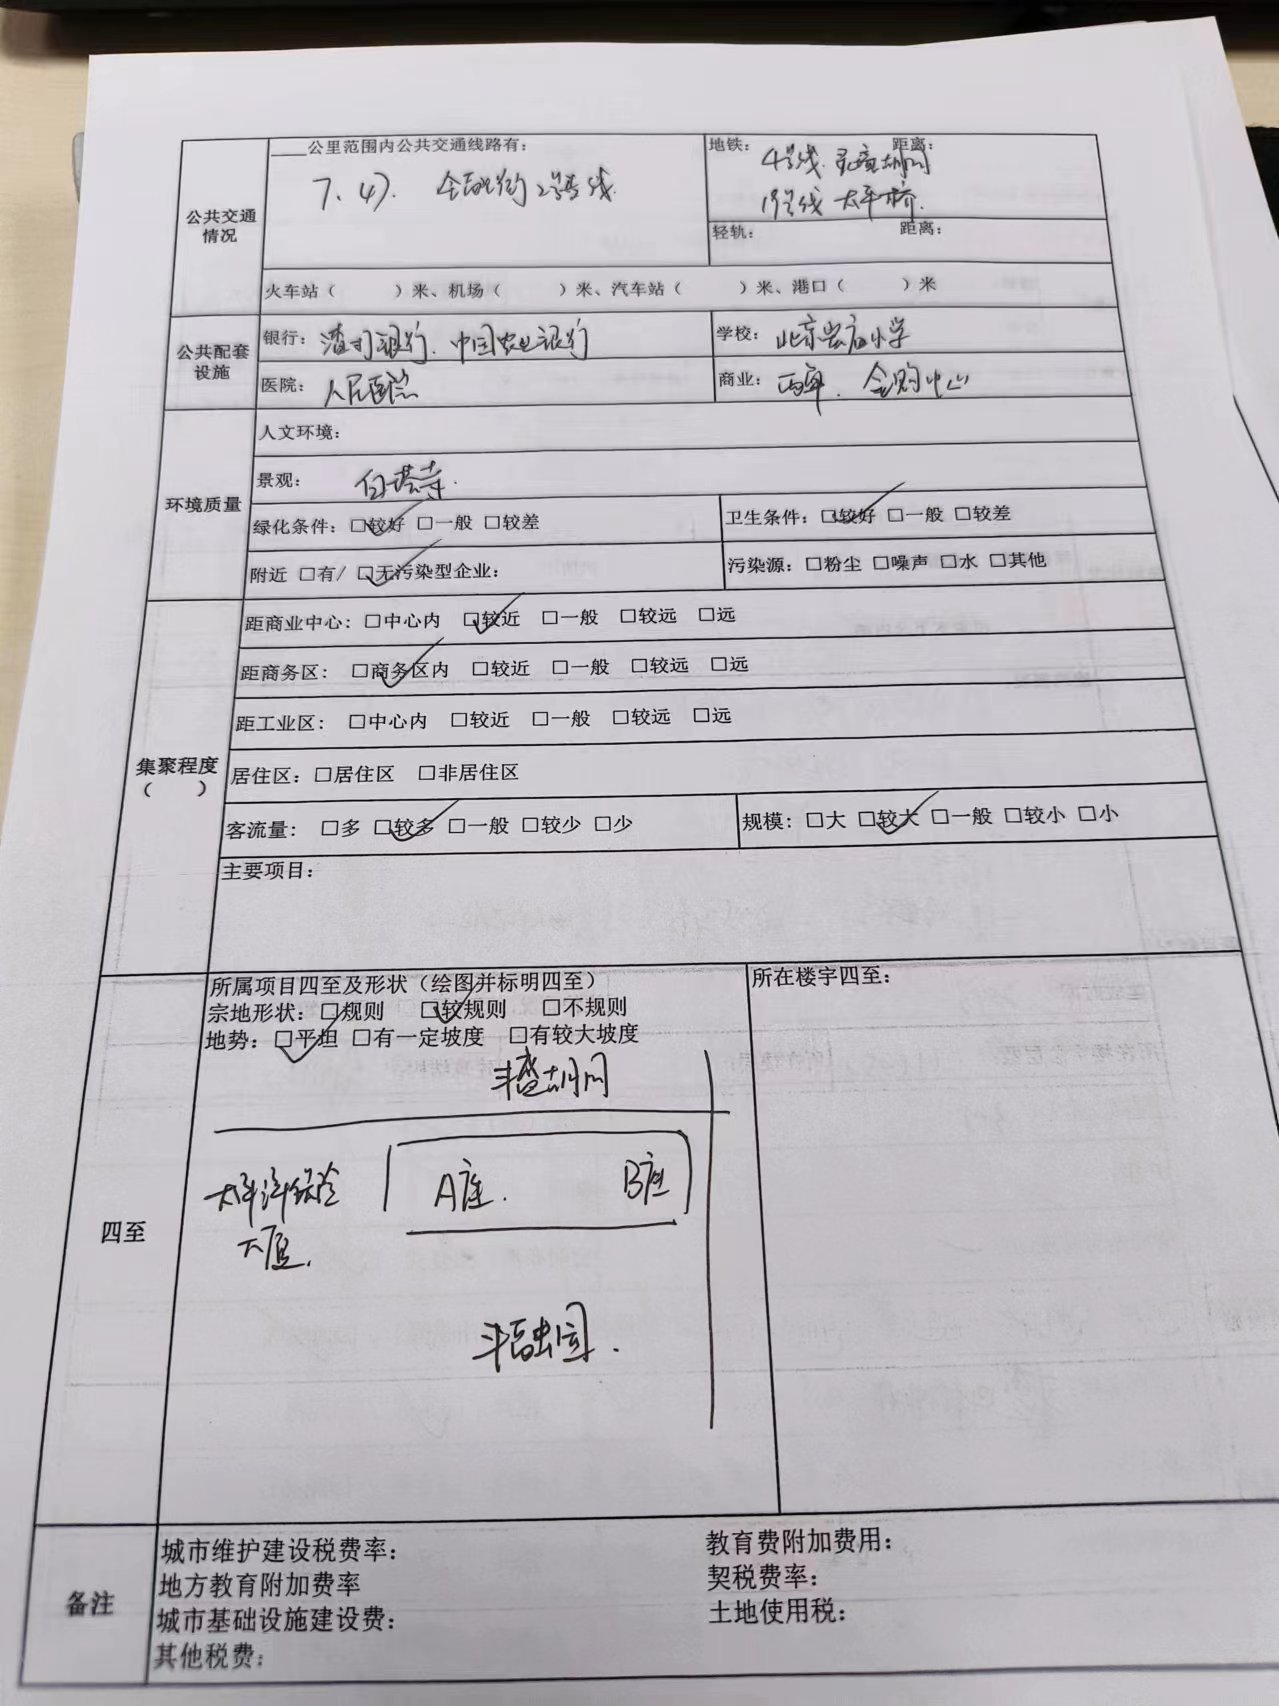 ____公里范围内公共交通线路有:
7、47、金融街2号专线
地铁: 距离:
4号线. 灵境胡同
1号线 太平桥.
公共交通情况
轻轨: 距离:
火车站( )米、机场( )米、汽车站( )米、港口( )米
公共配套设施
银行: 渣打银行. 中国农业银行
学校: 北京宏庙小学
医院: 人民医院
商业: 西单. 金购中心
环境质量
人文环境:
景观: 白塔寺.
绿化条件: □较好 □一般 □较差
卫生条件: □较好 □一般 □较差
附近 □有/ □无污染型企业:
污染源: □粉尘 □噪声 □水 □其他
集聚程度
( )
距商业中心: □中心内 □较近 □一般 □较远 □远
距商务区: □商务区内 □较近 □一般 □较远 □远
距工业区: □中心内 □较近 □一般 □较远 □远
居住区: □居住区 □非居住区
客流量: □多 □较多 □一般 □较少 □少
规模: □大 □较大 □一般 □较小 □小
主要项目:
四至
所属项目四至及形状(绘图并标明四至)
宗地形状: □规则 □较规则 □不规则
地势: □平坦 □有一定坡度 □有较大坡度
所在楼宇四至:
胡同
太平洋保险
大厦.
A座.
B座
丰融园.
备注
城市维护建设税费率:
教育费附加费用:
地方教育附加费率
契税费率:
城市基础设施建设费:
土地使用税:
其他税费: